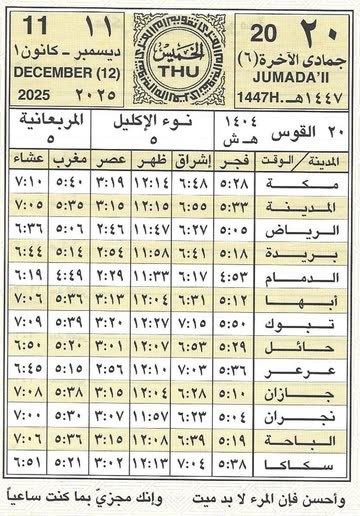 ٢٠ 20
جمادى الآخرة (٦)
JUMADA'II
١٤٤٧هـ. 1447H.
الخميس
THU
١١ 11
ديسمبر - كانون١
DECEMBER (12)
٢٠٢٥ 2025
٢٠ القوس ١٤٠٤ هـ ش
نوء الإكليل ٥
المربعانية ٥
المدينة / الوقت فجر إشراق ظهر عصر مغرب عشاء
مكة ٥:٢٨ ٦:٤٨ ١٢:١٤ ٣:١٩ ٥:٤٠ ٧:١٠
المدينة ٥:٣٣ ٦:٥٥ ١٢:١٥ ٣:١٥ ٥:٣٥ ٧:٠٥
الرياض ٥:٠٥ ٦:٢٧ ١١:٤٧ ٢:٤٦ ٥:٠٦ ٦:٣٦
بريدة ٥:١٨ ٦:٤١ ١١:٥٨ ٢:٥٤ ٥:١٤ ٦:٤٤
الدمام ٤:٥٣ ٦:١٧ ١١:٣٣ ٢:٢٩ ٤:٤٩ ٦:١٩
أبها ٥:١٢ ٦:٣١ ١٢:٠٤ ٣:١٣ ٥:٣٦ ٧:٠٦
تبوك ٥:٥٠ ٧:١٥ ١٢:٢٧ ٣:٢٠ ٥:٣٩ ٧:٠٩
حائل ٥:٢٩ ٦:٥٣ ١٢:٠٧ ٣:٠١ ٥:٢٠ ٦:٥٠
عرعر ٥:٣٦ ٧:٠٣ ١٢:١٠ ٢:٥٦ ٥:١٥ ٦:٤٥
جازان ٥:١٠ ٦:٢٨ ١٢:٠٤ ٣:١٥ ٥:٣٨ ٧:٠٨
نجران ٥:٠٤ ٦:٢٣ ١١:٥٧ ٣:٠٧ ٥:٣٠ ٧:٠٠
الباحة ٥:١٩ ٦:٣٩ ١٢:٠٨ ٣:١٦ ٥:٣٦ ٧:٠٦
سكاكا ٥:٣٨ ٧:٠٤ ١٢:١٣ ٣:٠٢ ٥:٢١ ٦:٥١
وأحسن فإن المرء لا بد ميت وإنك مجزيّ بما كنت ساعياً